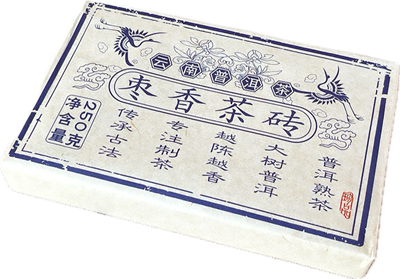 云南普洱茶
枣香茶砖
普洱熟茶
大树普洱
越陈越香
专注制茶
传承古法
净含量250克